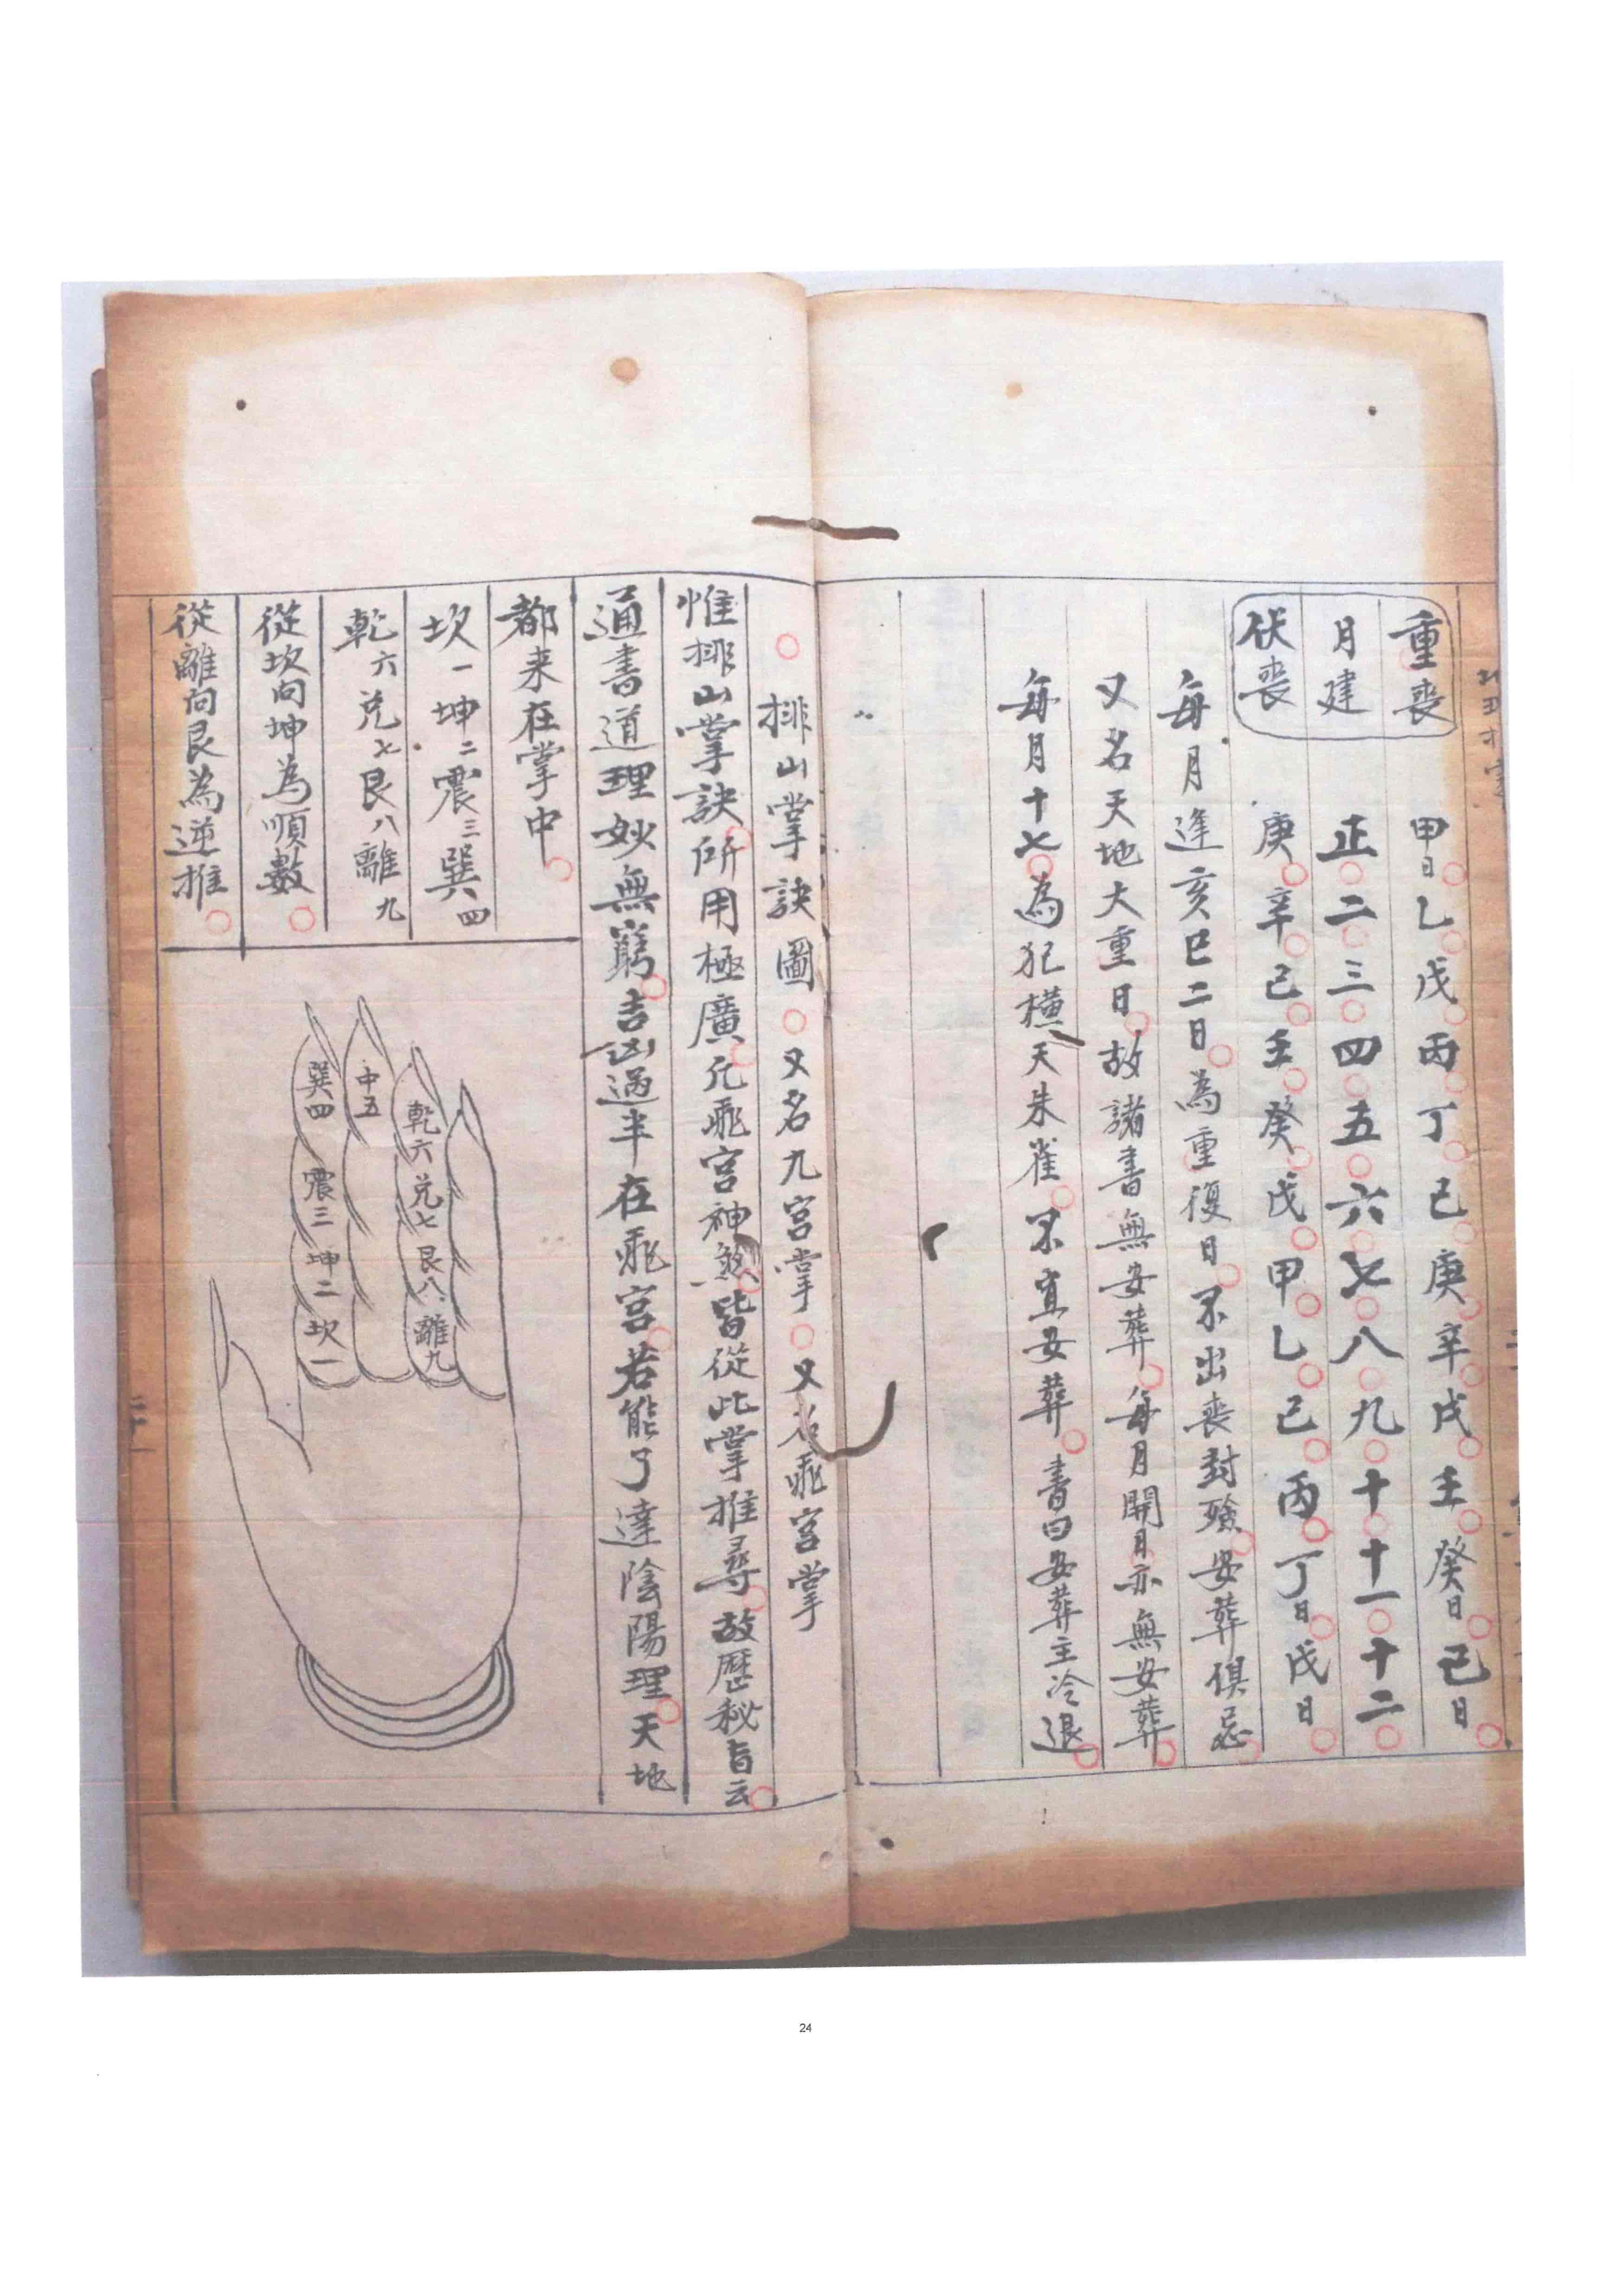 重喪 甲日乙戊丙丁己庚辛戊壬癸日己日
月建 正二三四五六七八九十十一十二
伏喪 庚辛己壬癸戊甲乙己丙丁日戊日
每月逢亥巳二日為重復日不出喪封殮安葬俱忌
又名天地大重日故諸書無安葬每月開日亦無安葬
每月十七為犯橫天朱雀不宜安葬書曰安葬主冷退
排山掌訣圖又名九宮掌又名飛宮掌
惟排山掌訣所用極廣凡飛宮神煞皆從此掌推尋故歷秘旨云
通書道理妙無窮吉凶過半在飛宮若能了達陰陽理天地
都来在掌中
坎一坤二震三巽四
乾六兌七艮八離九
從坎向坤為順數
從離向艮為逆推
乾六兌七艮八離九
中五
巽四震三坤二坎一
24